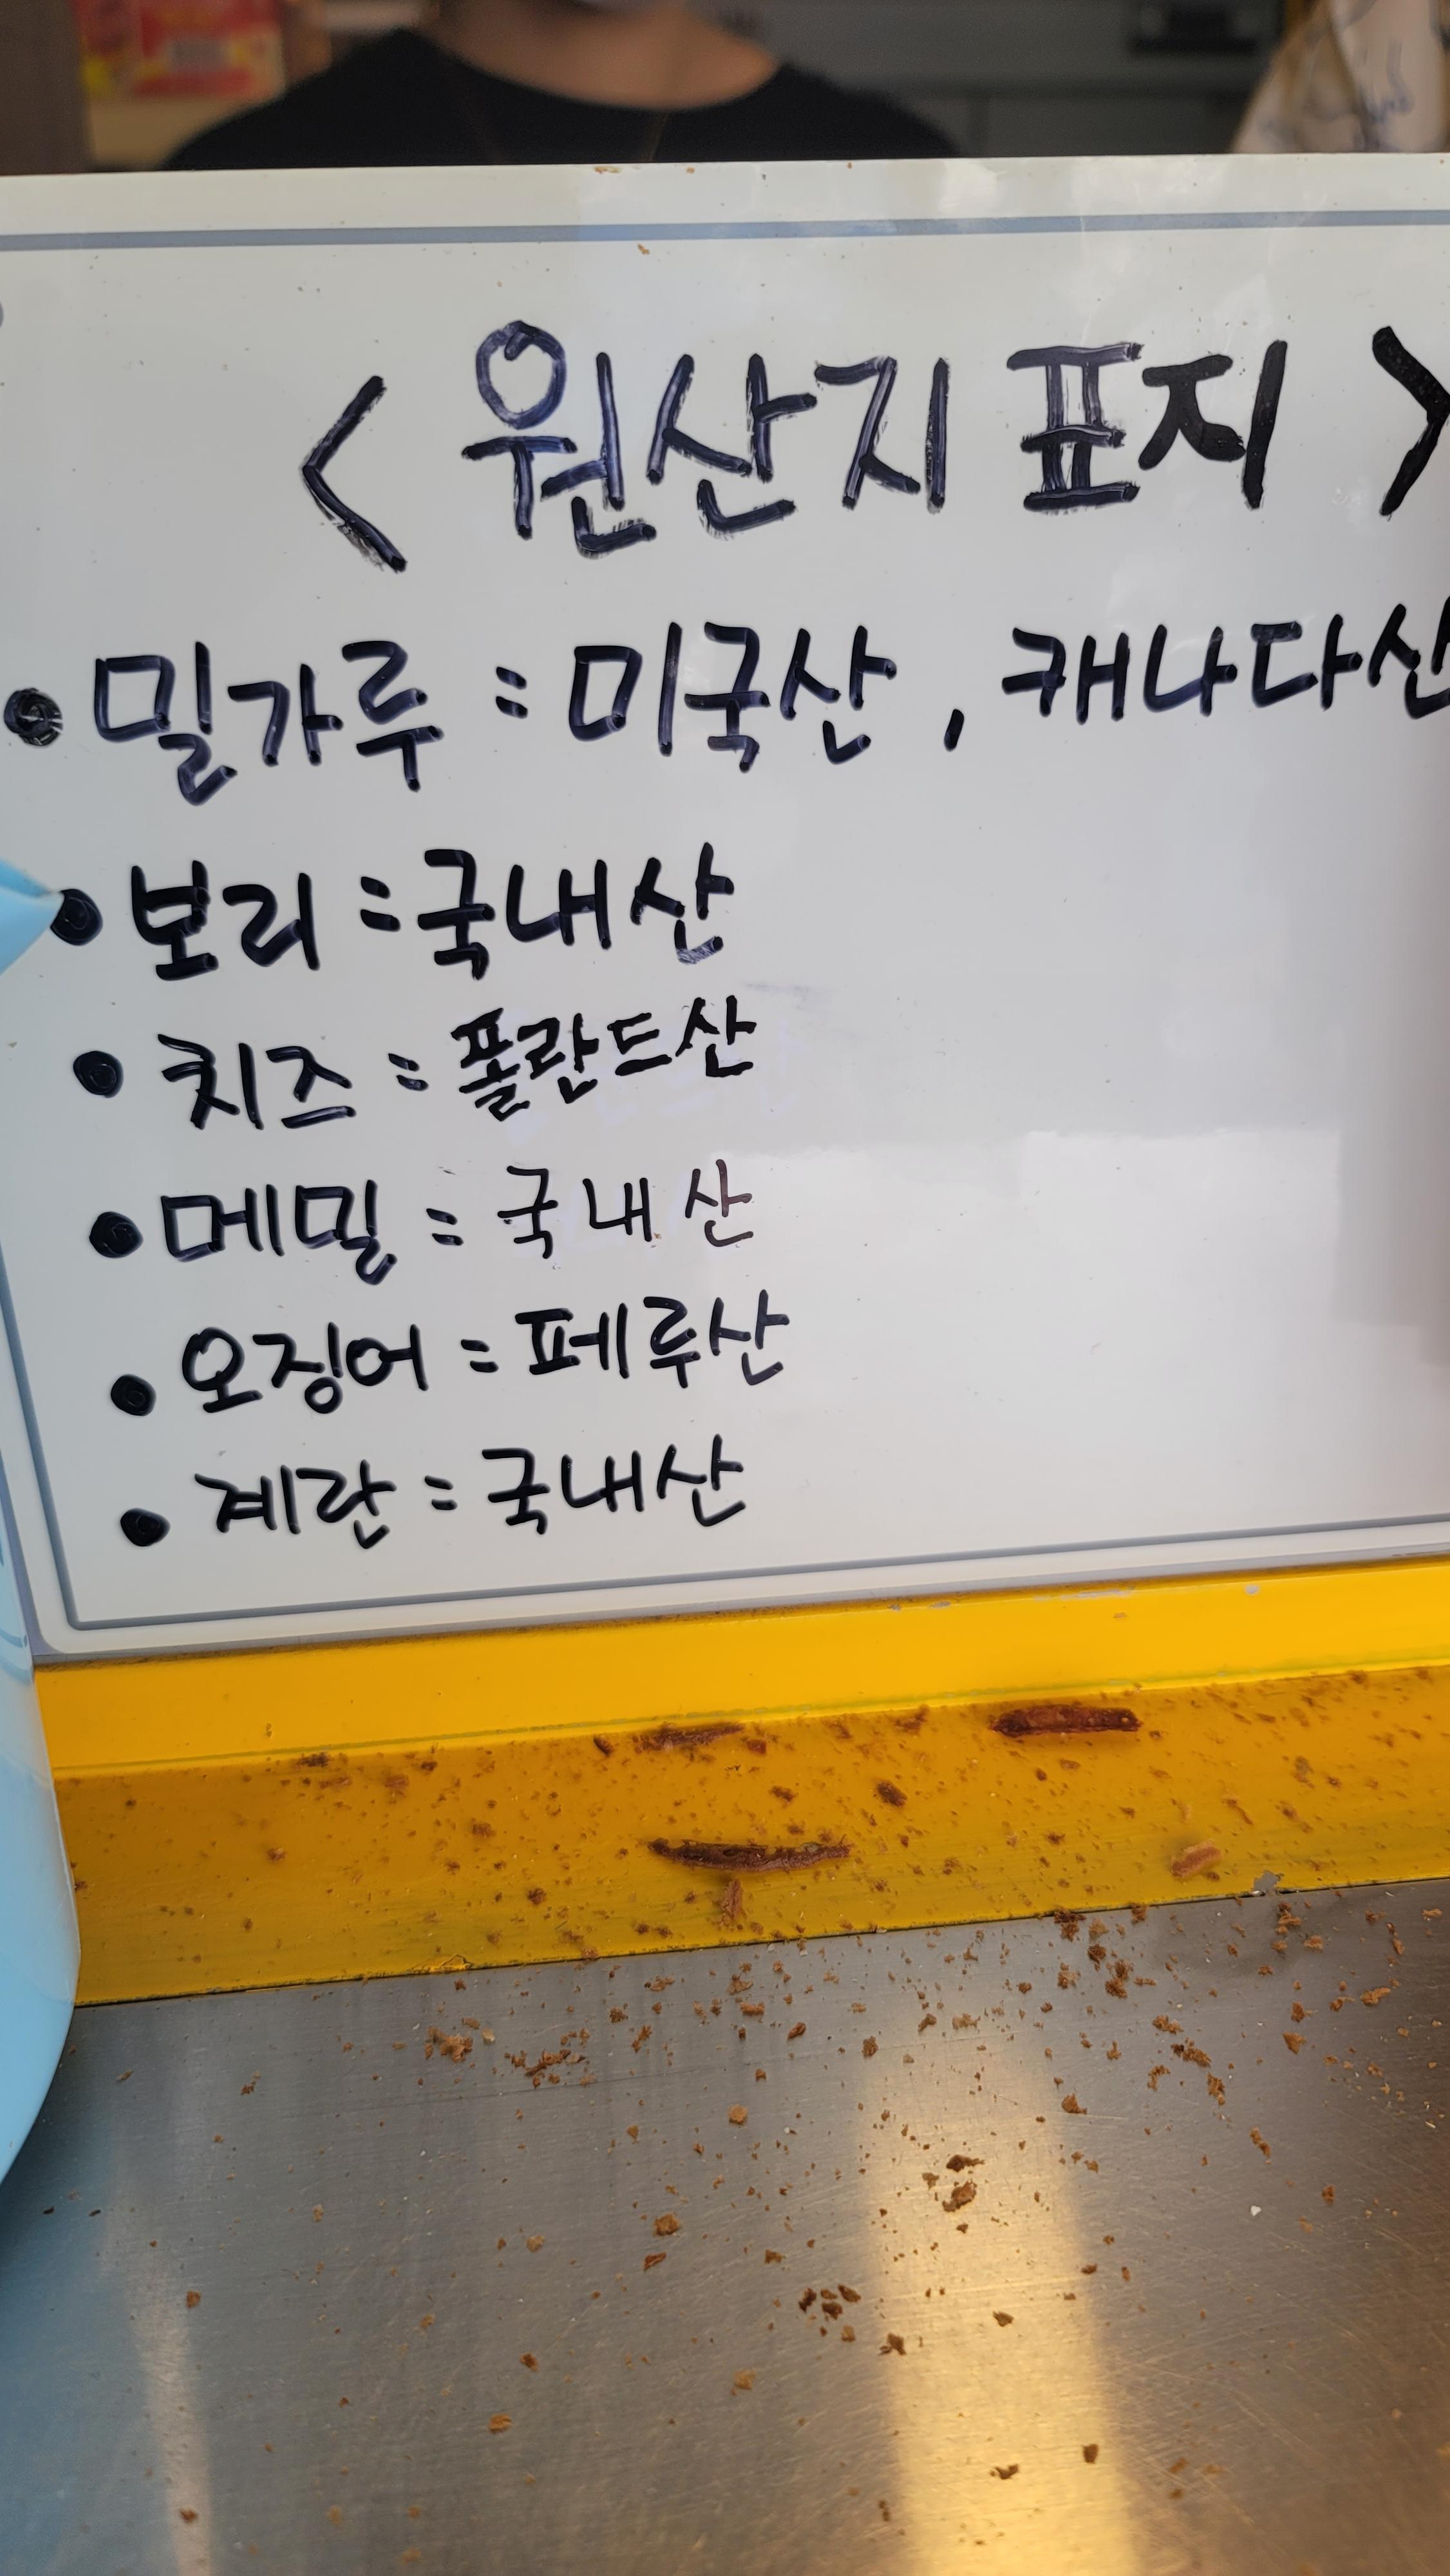 < 원산지 표지 >
• 밀가루 : 미국산 , 캐나다산
• 보리 : 국내산
• 치즈 : 폴란드산
• 메밀 : 국내산
• 오징어 : 페루산
• 계란 : 국내산